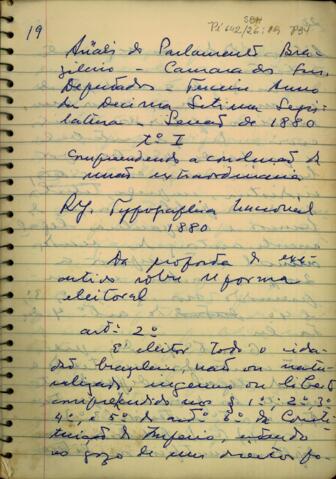 19
SBH
Pi 642/26:19 P34
Anais do Parlamento Bra
zileiro - Camara dos Srs.
Deputados - Terceiro Anno
da Decima Setima Legis
latura - Sessão de 1880
to I
Comprehendendo a conclusão da
reunião extraordinaria
R.J. Typographia Nacional
1880
Da proposta do
sobre reforma
eleitoral
art. 2º
É eleitor todo o cida
dão brasileiro, nato ou natu
ralizado, ingenuo ou liberto
comprehendido nos § 1º; 2º 3º
4º, e 5º do art. 6º da Consti
tuição do Imperio, estando
no gozo de seus direitos po-